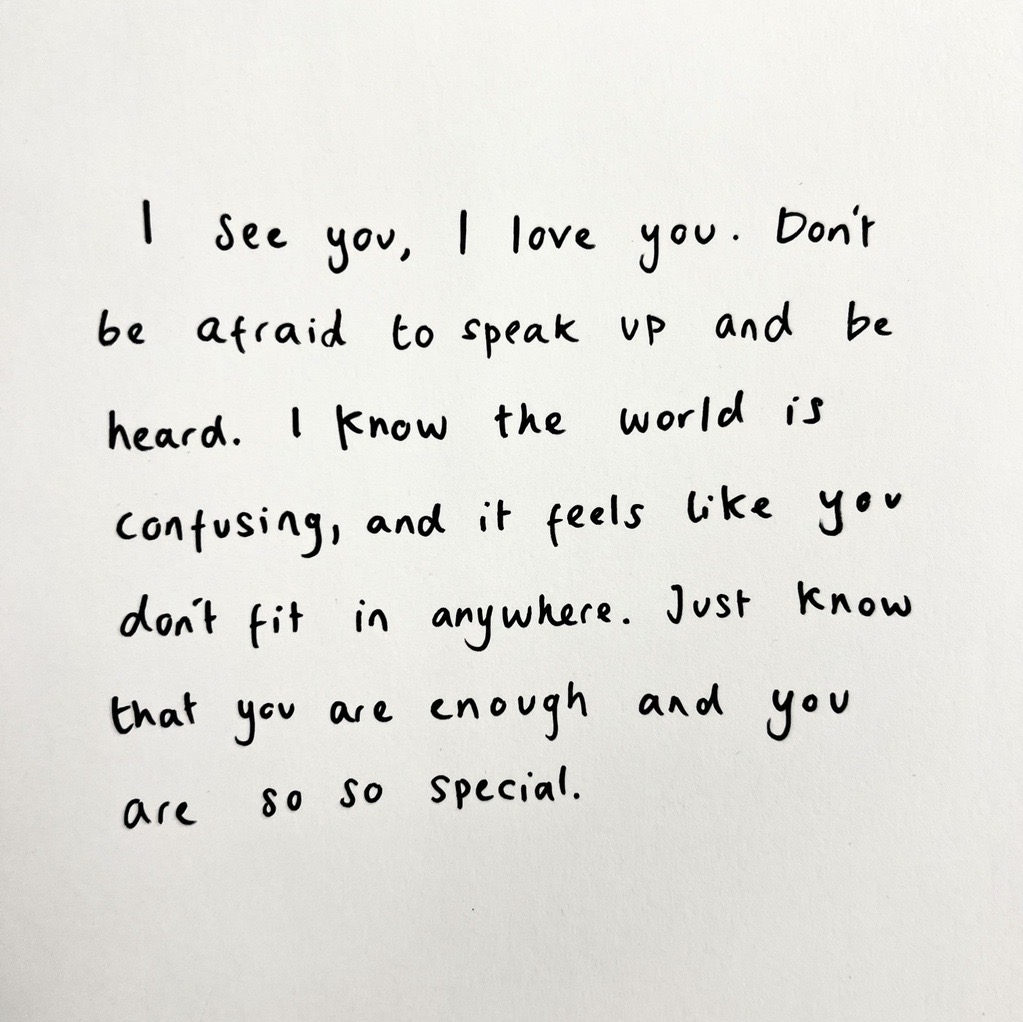 I see you, I love you. Don't
be afraid to speak up and be
heard. I know the world is
confusing, and it feels like you
don't fit in anywhere. Just know
that you are enough and you
are so so special.